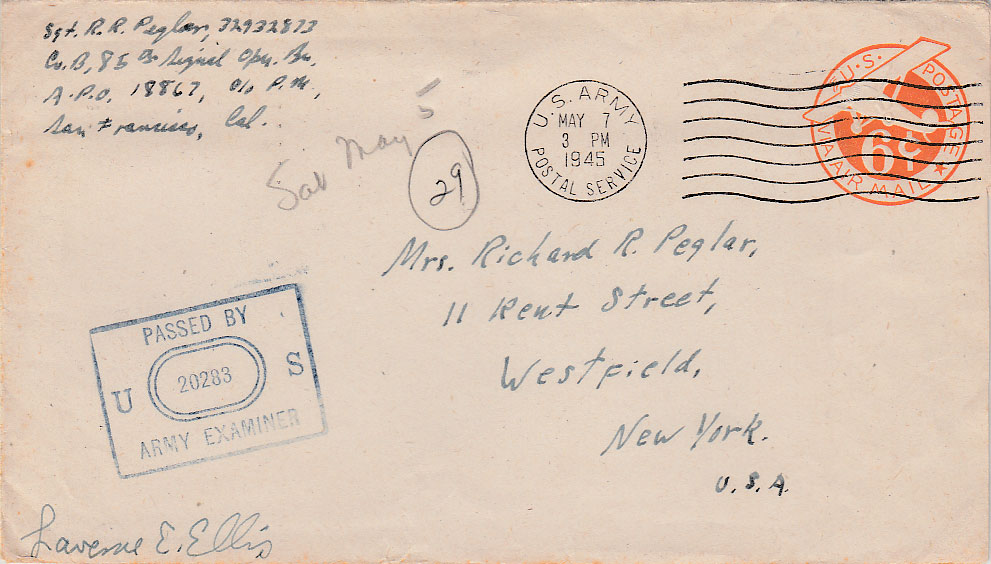 Sgt. R. R. Peglar, 32932873
Co. B, 85th Signal Opn. Bn.
A.P.O. 18867, c/o P.M.,
San Francisco, Cal.
Sat May 5
29
U.S. ARMY
MAY 7
3 PM
1945
POSTAL SERVICE
U.S. POSTAGE
6¢
VIA AIR MAIL
Mrs. Richard R. Peglar,
11 Kent Street,
Westfield,
New York.
U.S.A.
PASSED BY
U 20283 S
ARMY EXAMINER
Laverne E. Ellis